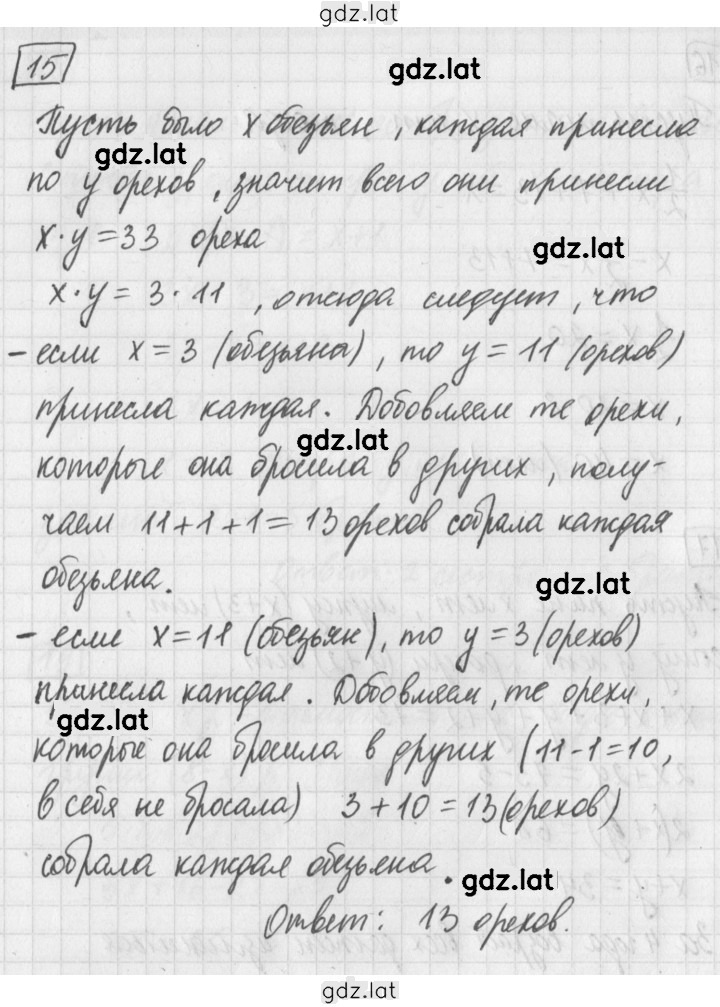 gdz.lat
15
gdz.lat
Пусть было x обезьян, каждая принесла
gdz.lat
по y орехов, значит всего они принесли
x·y=33 ореха
gdz.lat
x·y = 3·11, отсюда следует, что
- если x=3 (обезьяны), то y=11 (орехов)
принесла каждая. Добовляем те орехи,
gdz.lat
которые она бросила в других, полу-
чаем 11+1+1=13 орехов собрала каждая
обезьяна.
gdz.lat
- если x=11 (обезьян), то y=3 (орехов)
принесла каждая. Добовляем, те орехи,
gdz.lat
которые она бросила в других (11-1=10,
в себя не бросала) 3+10=13 (орехов)
собрала каждая обезьяна.
gdz.lat
Ответ: 13 орехов.
gdz.lat